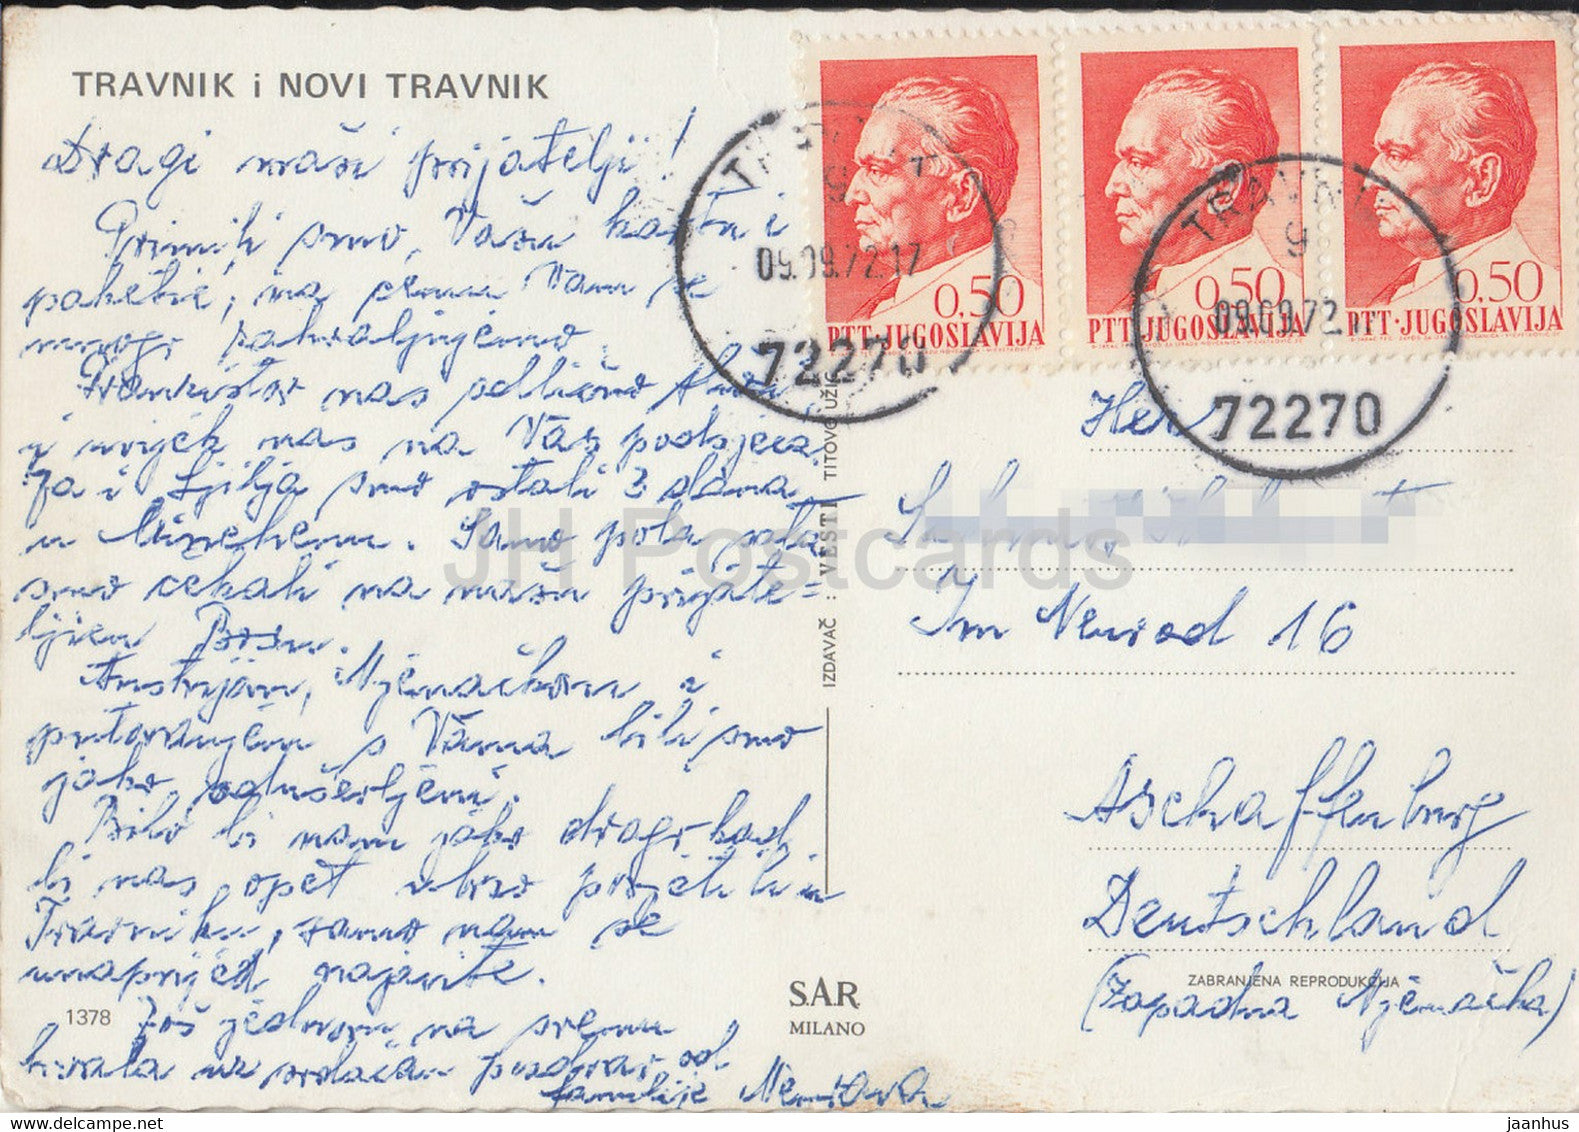 TRAVNIK i NOVI TRAVNIK
Dragi naši prijatelji!
Primili smo, Vašu kartu i
paketić, na čemu Vam se
mnogo zahvaljujemo.
nas odlično
i uvijek nas na Vas podsjeća.
Ja i Ljilja smo ostali 3 dana
u Münchenu. Samo pola sata
smo čekali na našu prijate-
ljicu
Austrijom, Njemačkom i
putovanjem s Vama bili smo
jako oduševljeni.
Bilo bi nam jako drago kad
bi nas opet ubrzo posjetili u
Travniku, samo nam se
unaprijed najavite.
Još jednom na svemu
hvala uz srdačan pozdrav od
familije
1378
SAR
MILANO
IZDAVAČ : VESTI TITOVO UŽICE
0,50
PTT·JUGOSLAVIJA
0,50
PTT·JUGOSLAVIJA
0,50
PTT·JUGOSLAVIJA
TRAVNIK
9
09.09.72.17
72270
TRAVNIK
9
09.09.72.17
72270
Herr
Im Neurod 16
Aschaffenburg
Deutschland
ZABRANJENA REPRODUKCIJA
(Zapadna Njemačka)
JH Postcards
jaanhus @ delcampe.net